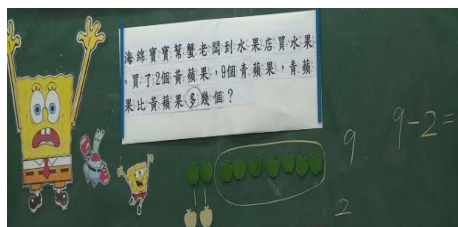 海綿寶寶幫蟹老闆到水果店買水果
，買了2個黃蘋果，9個青蘋果，青蘋
果比黃蘋果多幾個？
9 9-2=
2